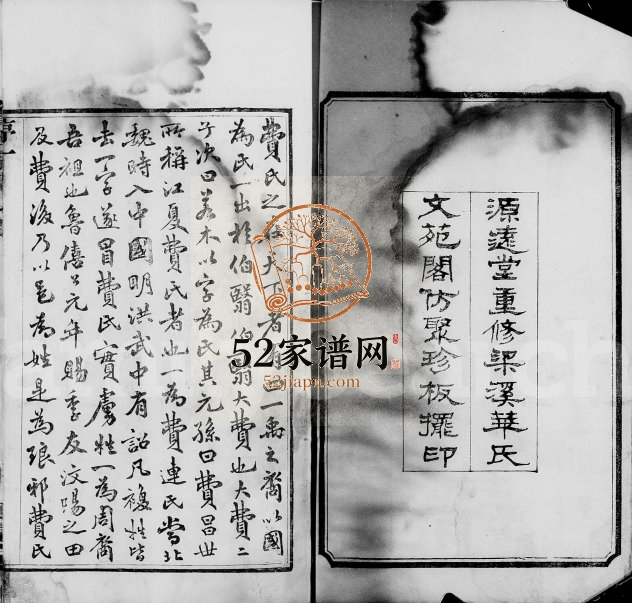 源遠堂重修梁溪華氏
文苑閣仿聚珍板擺印
費氏之大下者有三一禹之裔以國
為氏一出於伯翳伯翳大費也大費二
子次曰若木以字為氏其元孫曰費昌世
所稱江夏費氏者也一為費連氏當北
魏時入中國明洪武中有詔凡複姓皆
去一字遂冒費氏實虜姓一為周裔
吾祖也魯僖公元年賜季友汶陽之田
及費後乃以邑為姓是為琅邪費氏
52家谱网
52jiapu.com